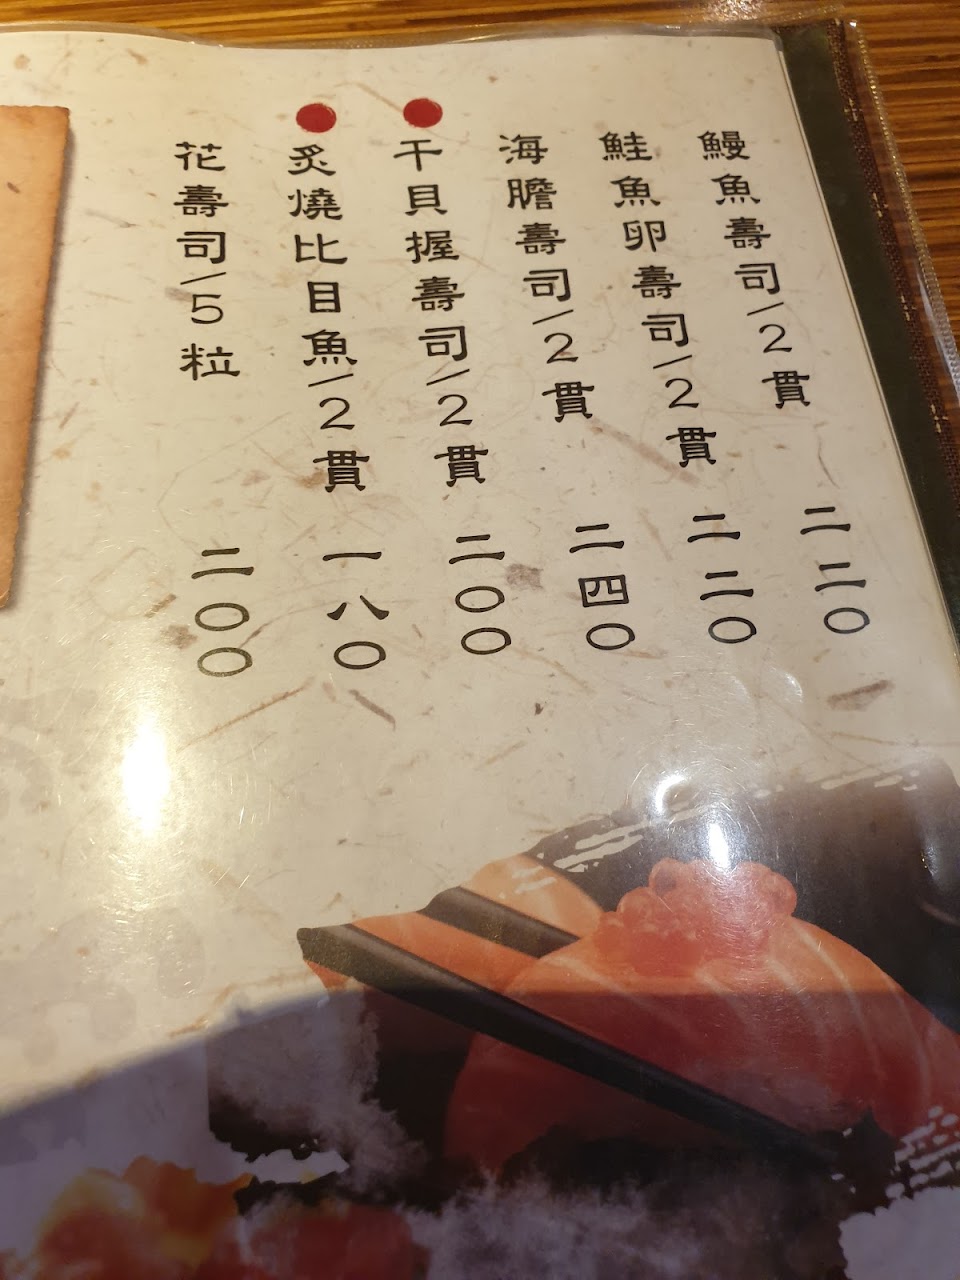 鰻魚壽司/2貫 二二〇
鮭魚卵壽司/2貫 二二〇
海膽壽司/2貫 二四〇
干貝握壽司/2貫 二〇〇
炙燒比目魚/2貫 一八〇
花壽司/5粒 二〇〇